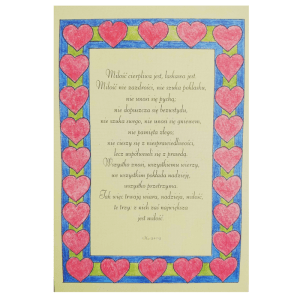 Miłość cierpliwa jest, łaskawa jest
Miłość nie zazdrości, nie szuka poklasku,
nie unosi się pychą,
nie dopuszcza się bezwstydu,
nie szuka swego, nie unosi się gniewem,
nie pamięta złego,
nie cieszy się z niesprawiedliwości,
lecz współweseli się z prawdą.
Wszystko znosi, wszystkiemu wierzy,
we wszystkim pokłada nadzieję,
wszystko przetrzyma.
Tak więc trwają wiara, nadzieja, miłość,
te trzy: z nich zaś największa
jest miłość